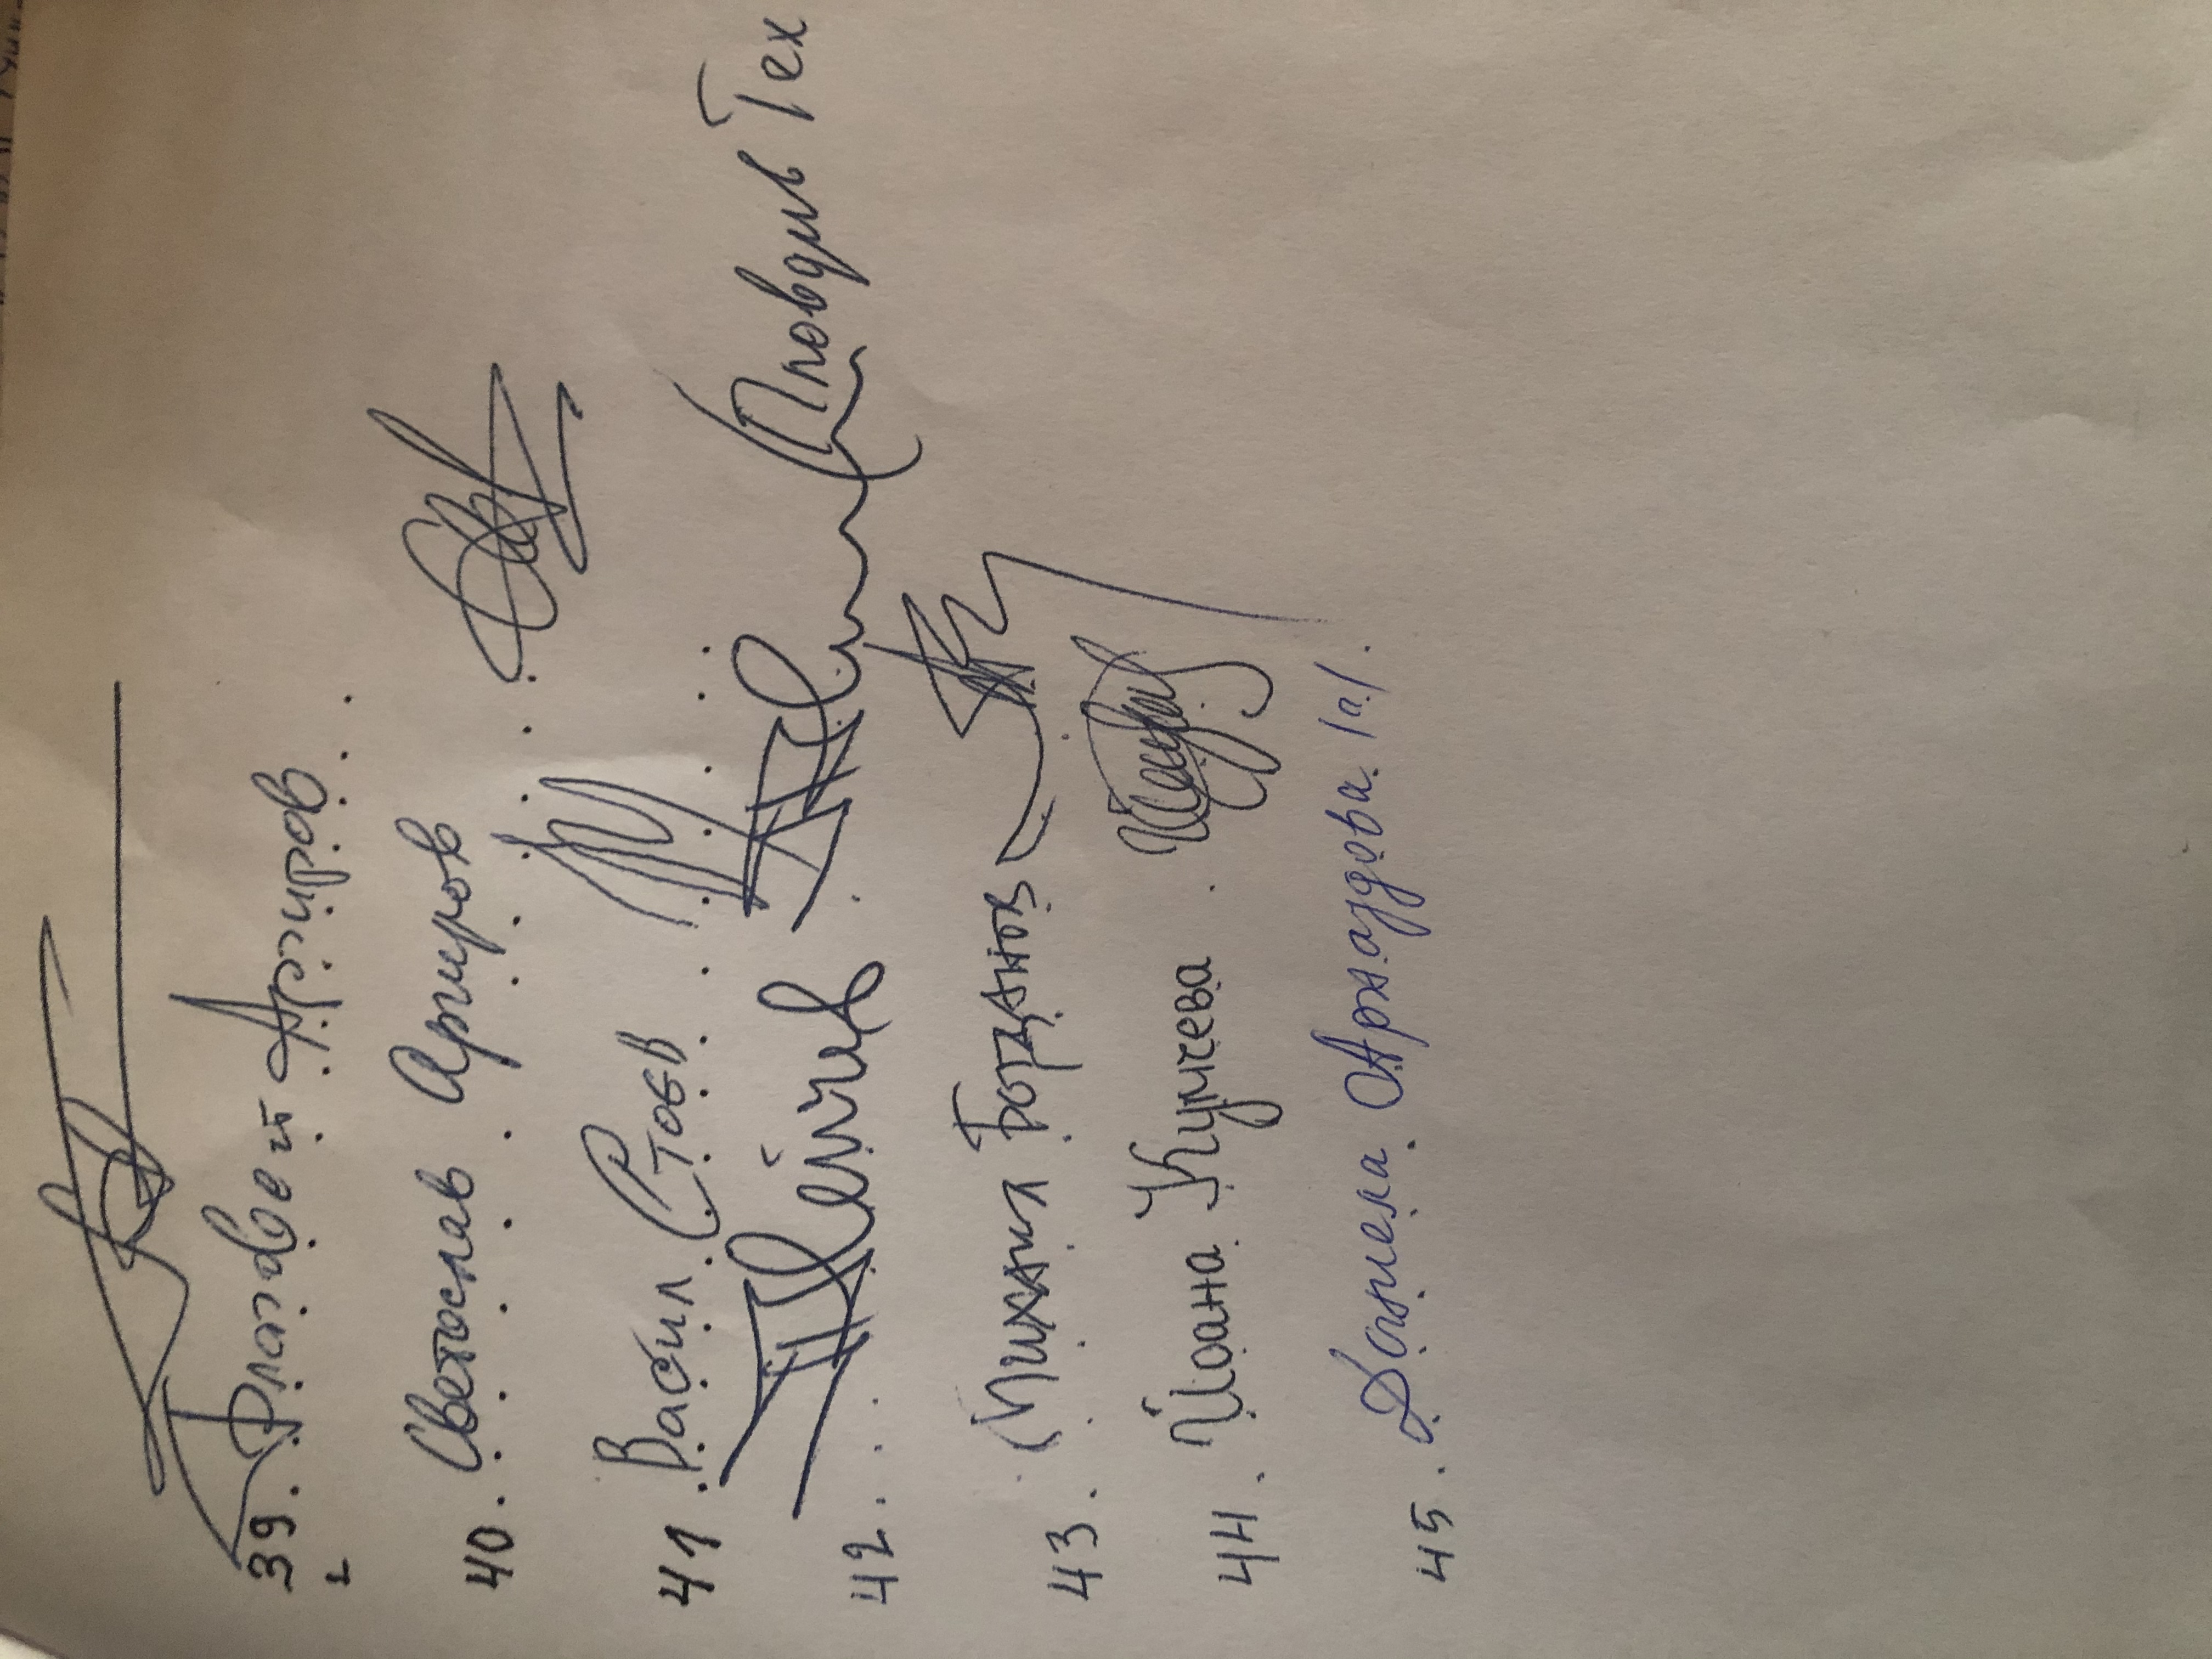 39. Благовест Аргиров
40. Светослав Аргиров
41. Васил Стоев
42. Пловдив Тех
43. Михаил Богданов
44. Йоана Кумчева
45. Даниела Арнаудова /п/